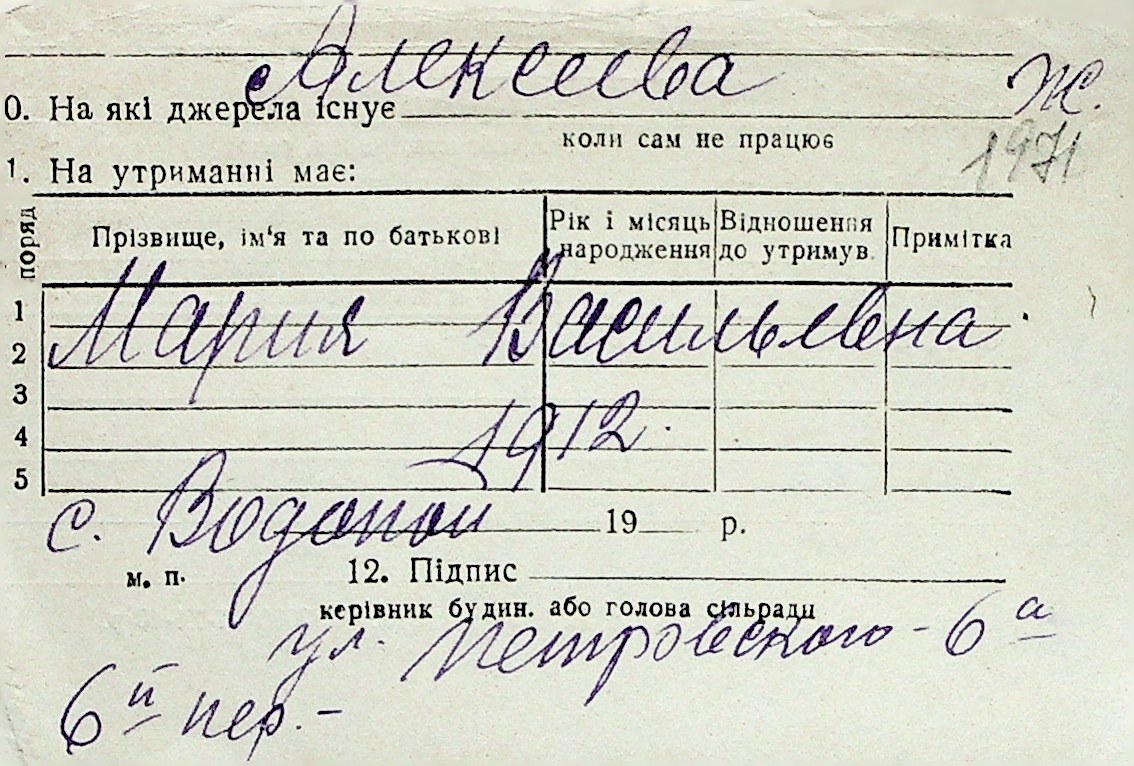 Алексеева
0. На які джерела існує Ж.
коли сам не працює
1971
1. На утриманні має:
поряд Прізвище, ім'я та по батькові Рік і місяць народження Відношення до утримув. Примітка
1
Мария Васильевна.
2
3
1912.
4
5
с. Водопой 19 р.
м. п. 12. Підпис
керівник будин. або голова сільради
ул. Петровского - 6а
6й пер. -